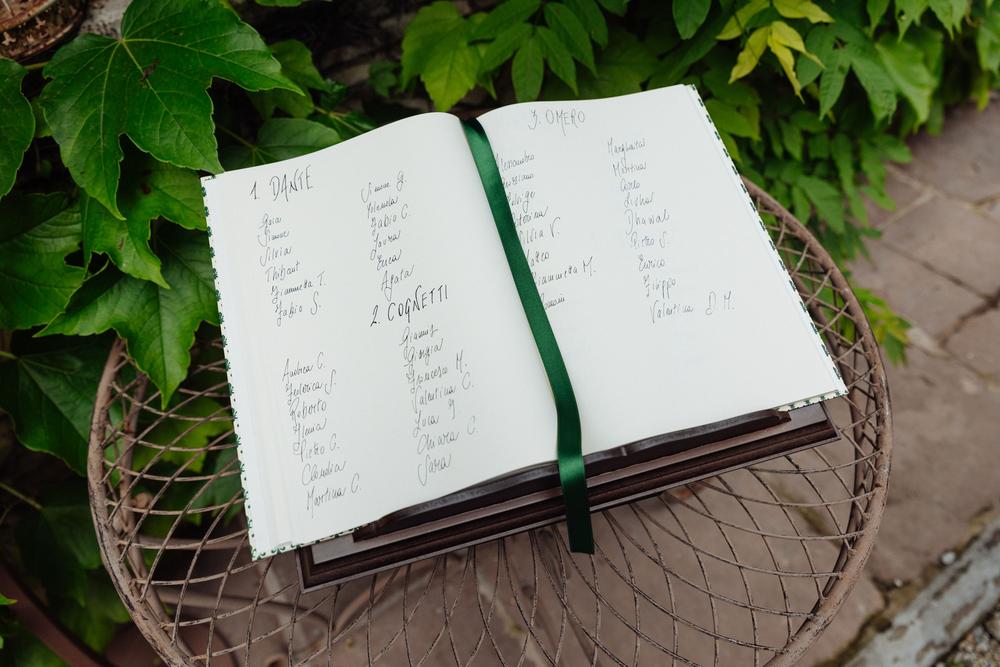 1. DANTE
Gaia
Simone
Silvia
Thibaut
Giannetta T.
Fabio S.
Simone G.
Iolanda
Fabio C.
Laura
Luca
Agata
2. COGNETTI
Andrea C.
Federica S.
Roberto
Ilenia
Pietro C.
Claudia
Martina C.
Gianni
Giorgia
Francesco M.
Valentina C.
Luca G
Chiara C.
Sara
3. OMERO
Alessandro
Caterina
Silvia V.
Matteo
Giannetta M.
Margherita
Martina
Carlo
Lisha
Dhawal
Pietro S.
Enrico
Filippo
Valentina D.M.